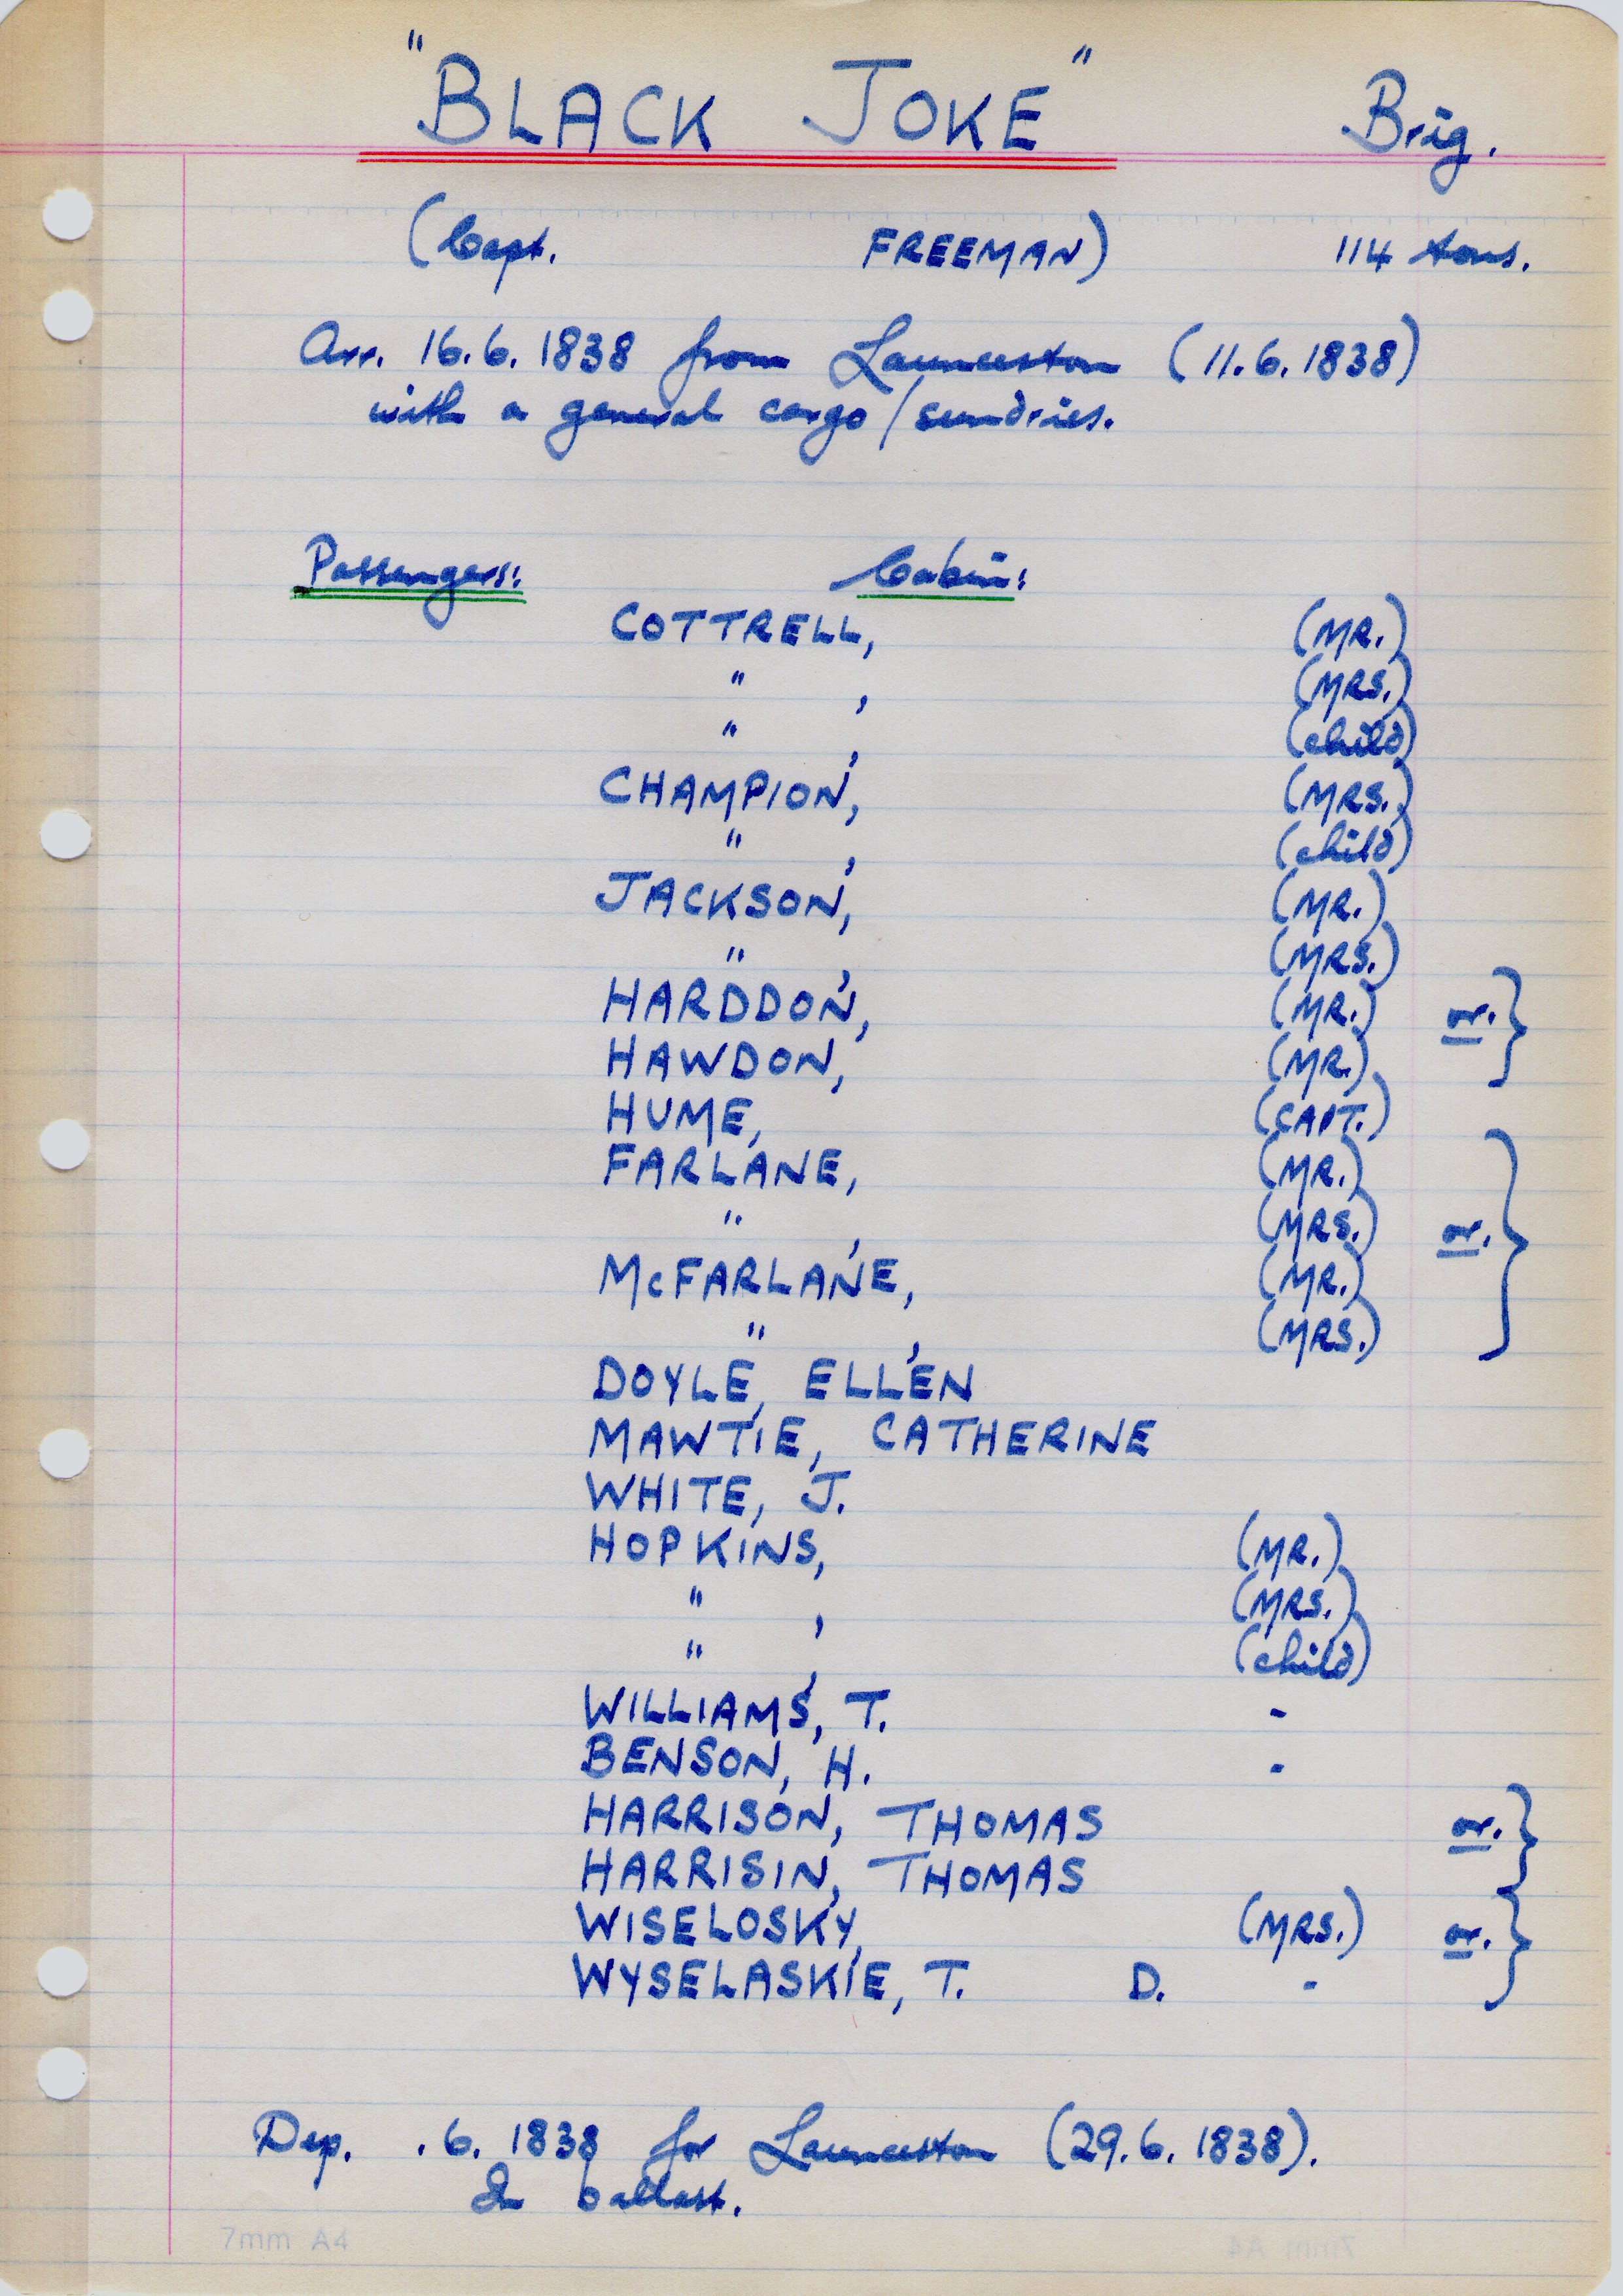 "BLACK JOKE" Brig.
(Capt. FREEMAN) 114 tons.
Arr. 16.6.1838 from Launceston (11.6.1838)
with a general cargo/sundries.
Passengers: Cabin:
COTTRELL, (MR.)
" , (MRS.)
" , (child)
CHAMPION, (MRS.)
" , (child)
JACKSON, (MR.)
" , (MRS.)
HARDDON, (MR.) or. }
HAWDON, (MR.)
HUME, (CAPT.)
FARLANE, (MR.)
" , (MRS.) or. }
McFARLANE, (MR.)
" , (MRS.)
DOYLE, ELLEN
MAWTIE, CATHERINE
WHITE, J.
HOPKINS, (MR.)
" , (MRS.)
" , (child)
WILLIAMS, T. -
BENSON, H. -
HARRISON, THOMAS or. }
HARRISIN, THOMAS
WISELOSKY, (MRS.) or. }
WYSELASKIE, T. D. -
Dep. .6.1838 for Launceston (29.6.1838).
In ballast.
7mm A4